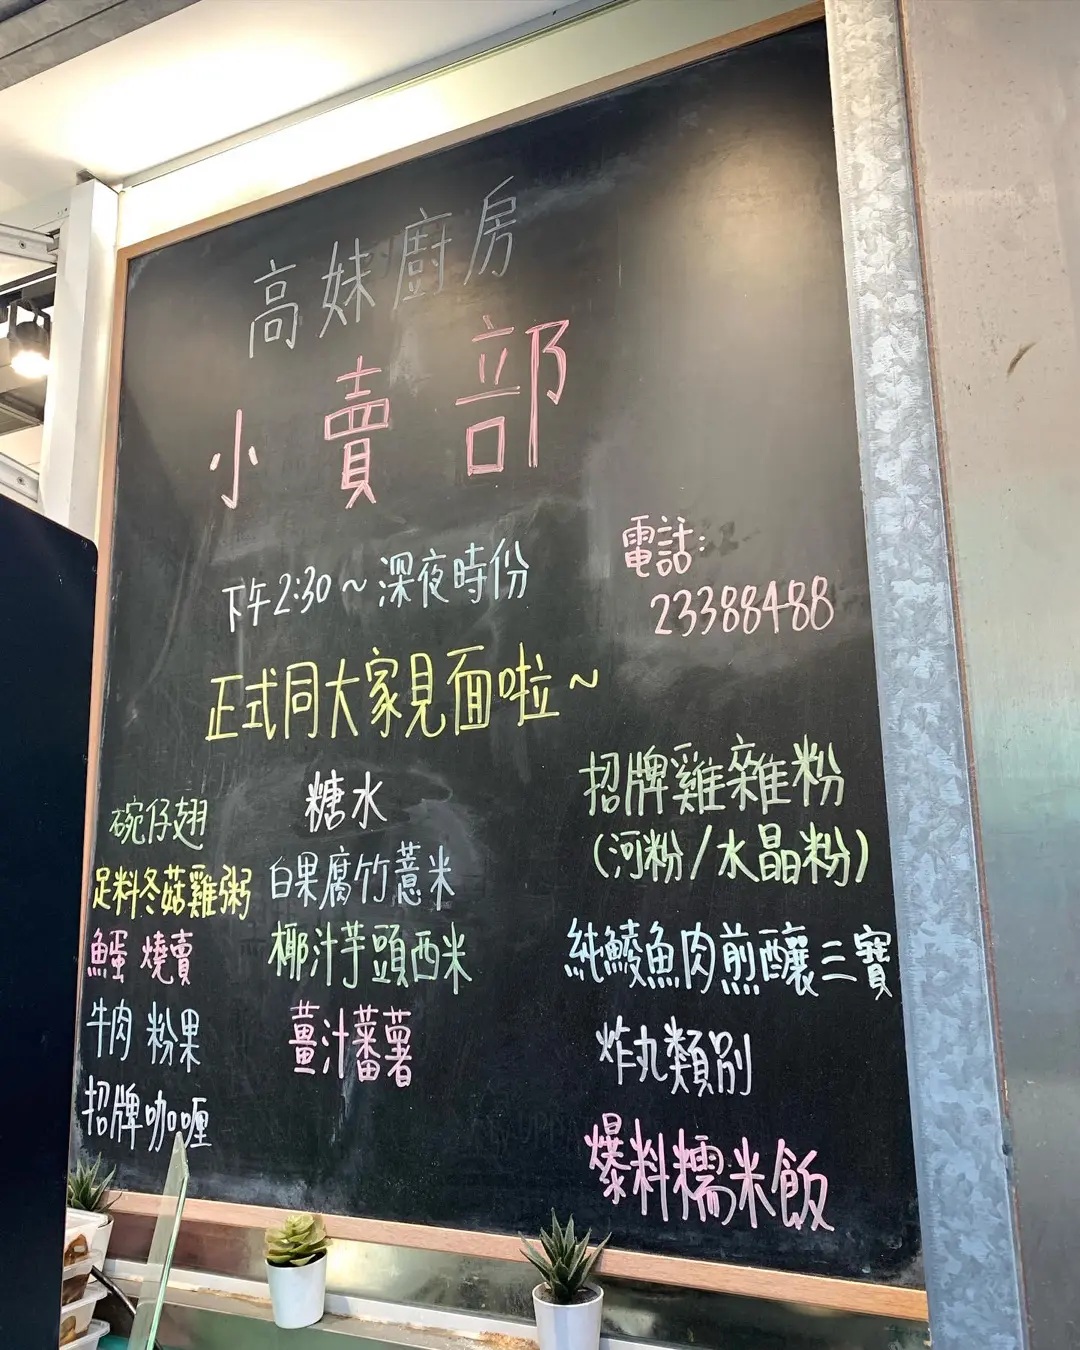 高妹廚房
小賣部
下午2:30～深夜時份
電話:
23388488
正式同大家見面啦～
碗仔翅
足料冬菇雞粥
魚蛋 燒賣
牛肉 粉果
招牌咖喱
糖水
白果腐竹薏米
椰汁芋頭西米
薑汁蕃薯
招牌雞雜粉
(河粉/水晶粉)
純鯪魚肉煎釀三寶
炸丸類別
爆料糯米飯